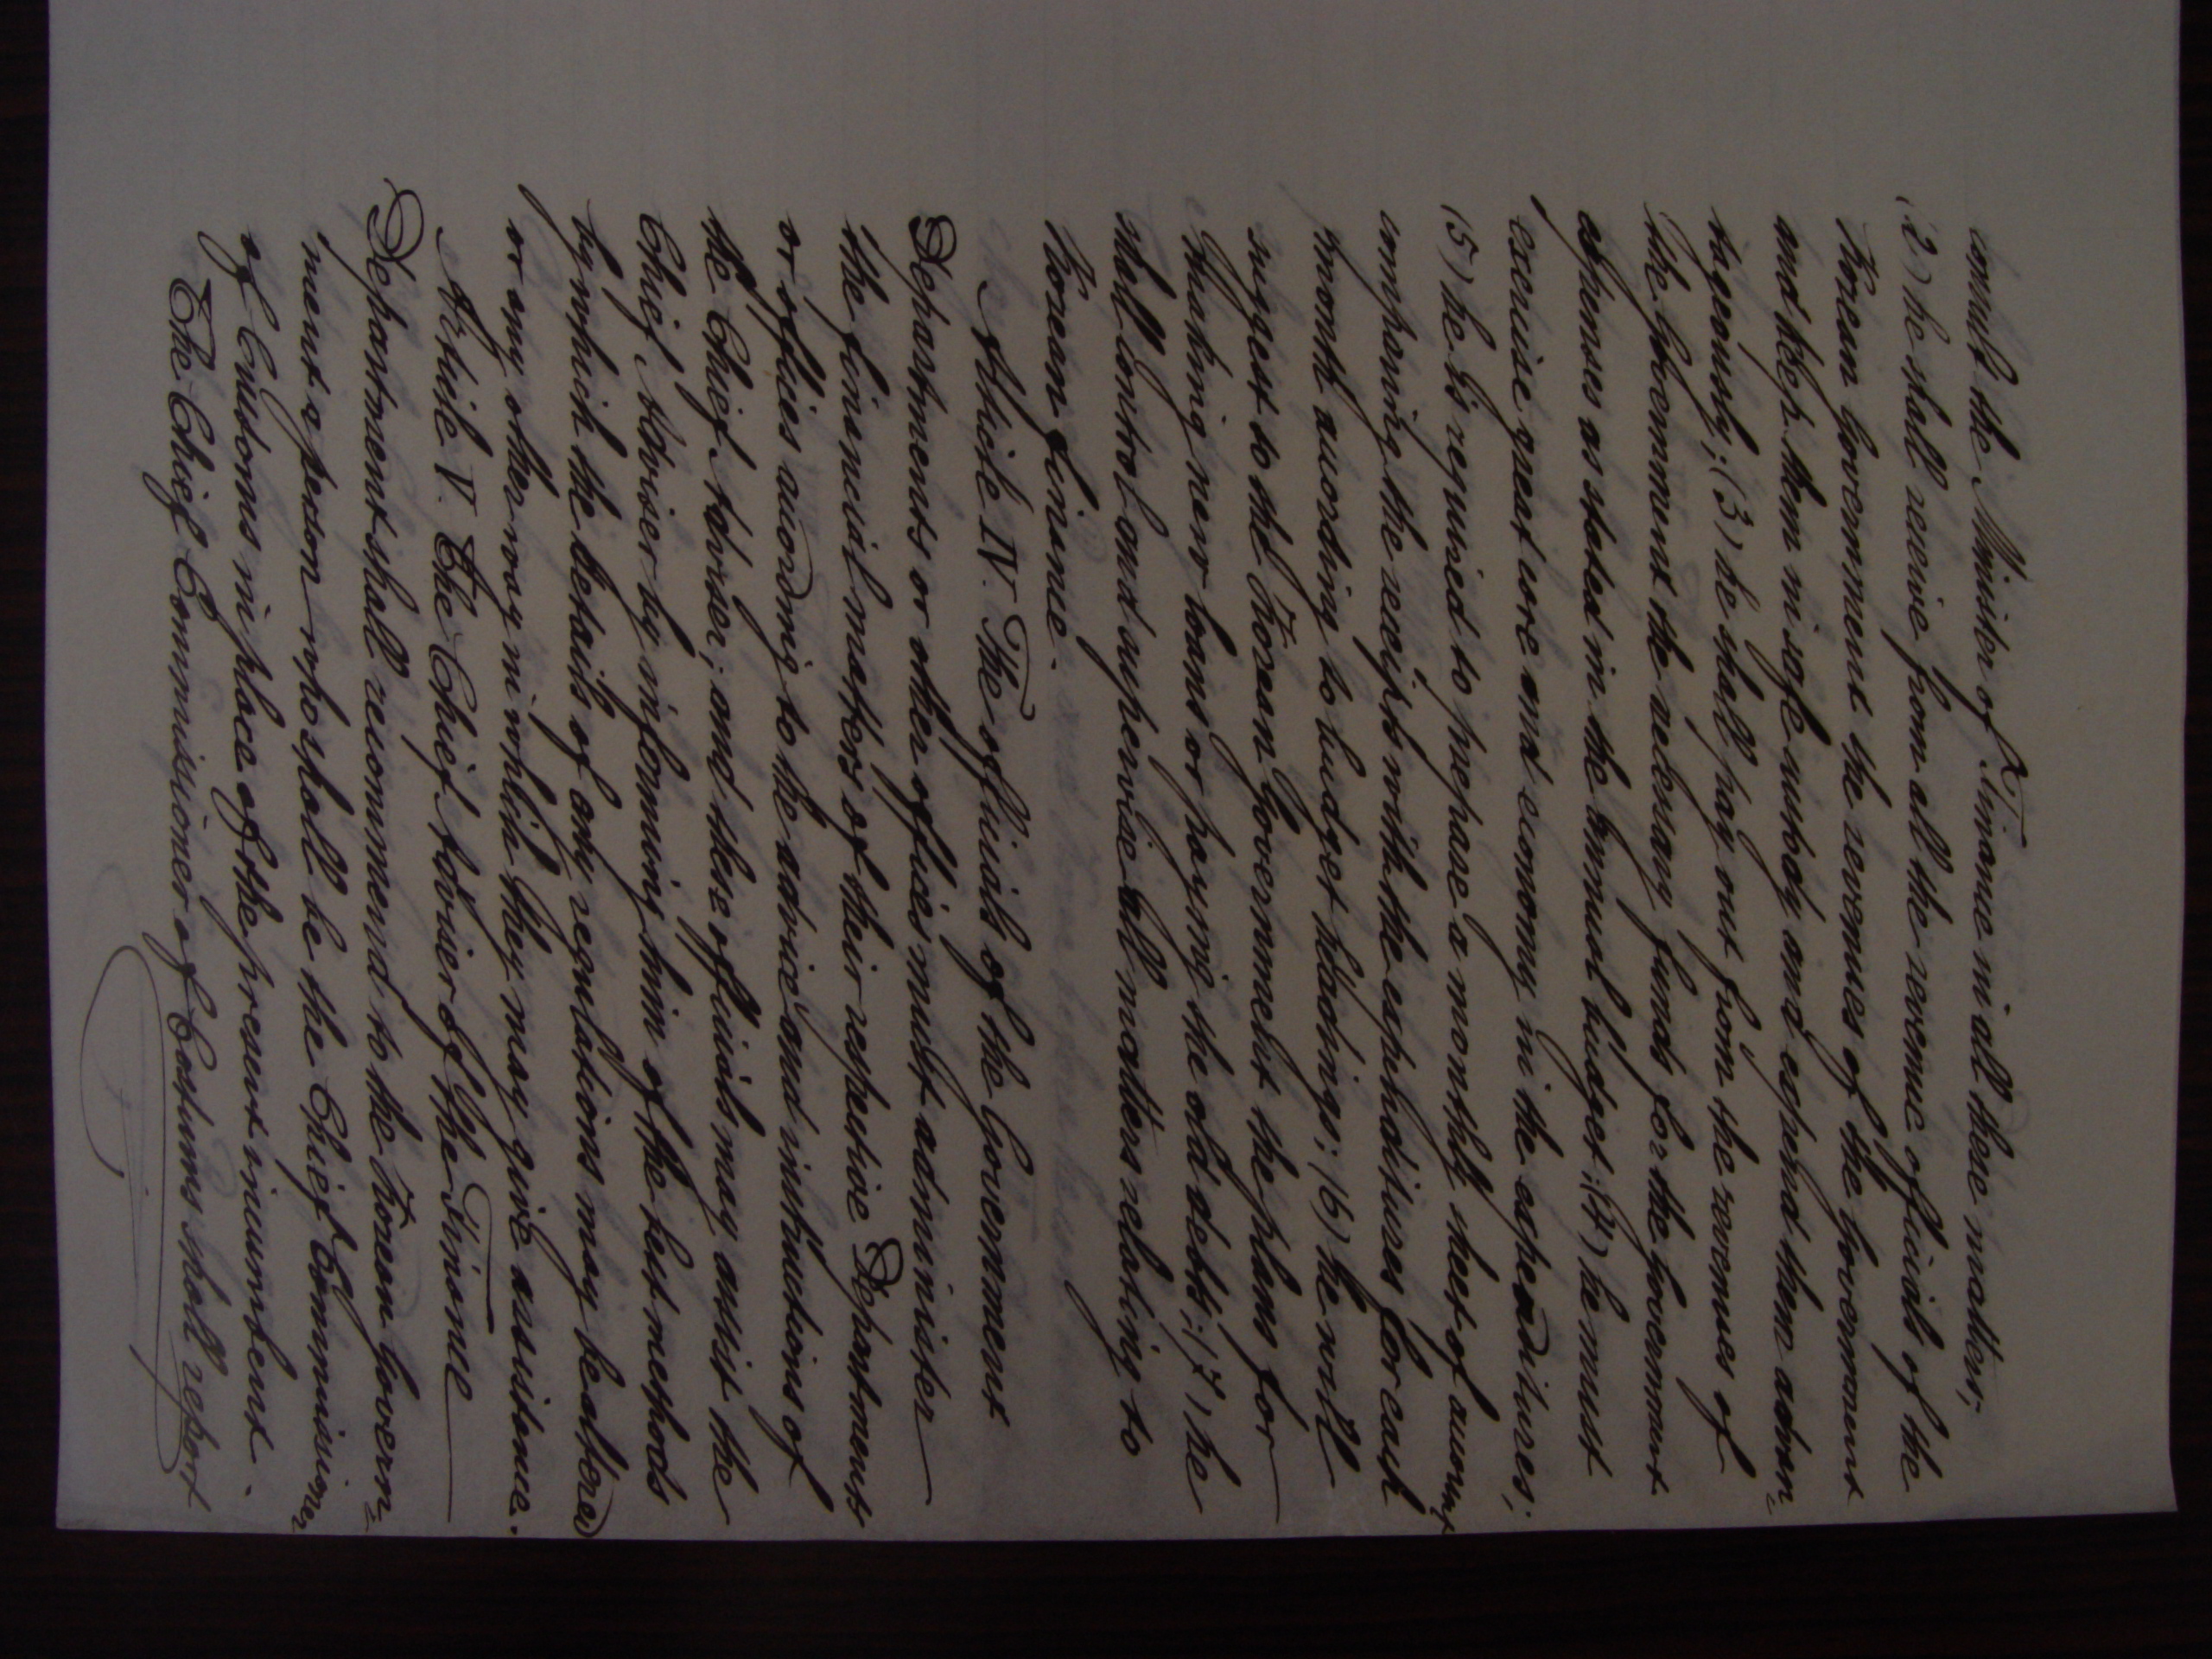 consult the Minister of Finance in all these matters;
(2) he shall receive from all the revenue officials of the
Korean Government the revenues of the Government
and keep them in safe custody and expend them advan=
tageously; (3) he shall pay out from the revenues of
the Government the necessary funds for the Government
expenses as stated in the annual budget; (4) he must
exercise great care and economy in the expenditures;
(5) he is required to prepare a monthly sheet of account
comparing the receipts with the expenditures for each
month according to budget headings; (6) he will
suggest to the Korean Government the plans for
making new loans or paying the old debts; (7) he
shall control and supervise all matters relating to
Korean finance.
Article IV. The officials of the Government
Departments or other offices must administer
the financial matters of their respective Departments
or offices according to the advice and instructions of
the Chief Adviser; and these officials may assist the
Chief Adviser by informing him of the best methods
by which the details of any regulations may be altered
or any other way in which they may give assistance.
Article V. The Chief Adviser of the Finance
Department shall recommend to the Korean Govern=
ment a person who shall be the Chief Commissioner
of Customs in place of the present incumbent.
The Chief Commissioner of Customs shall report